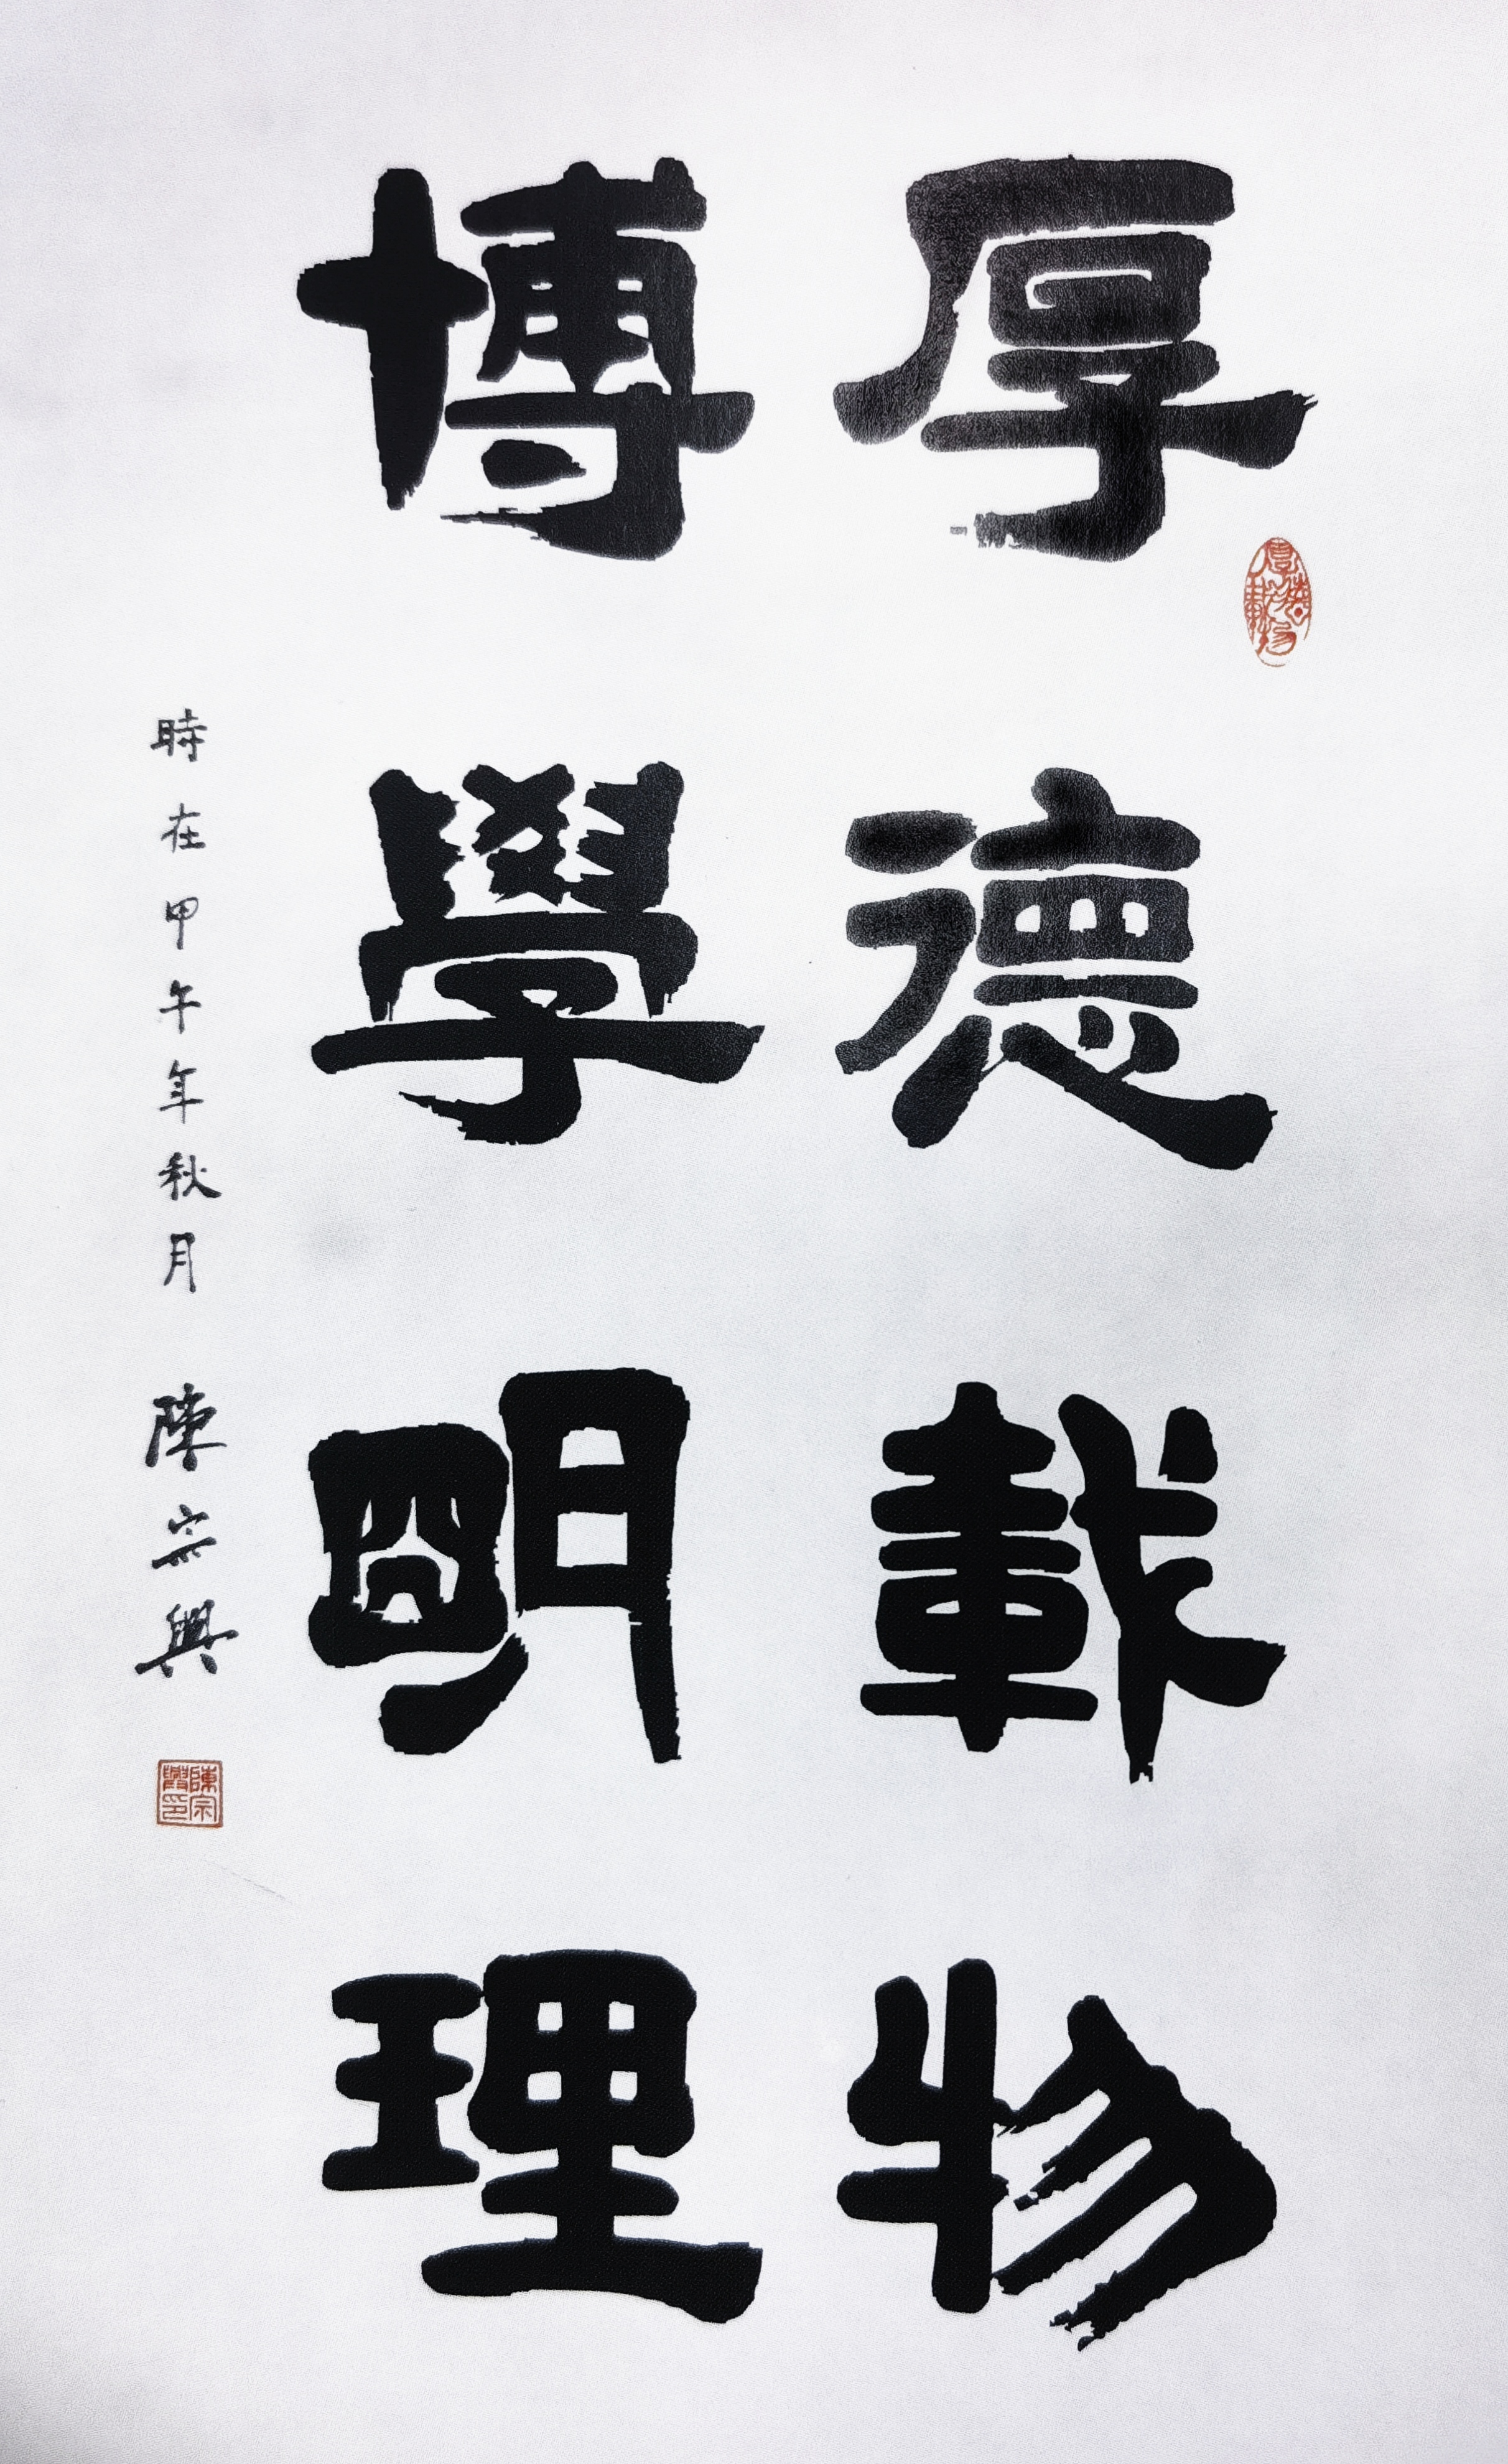 厚德載物
厚德載物
博學明理
時在甲午年秋月 陳宗興
陳宗興印